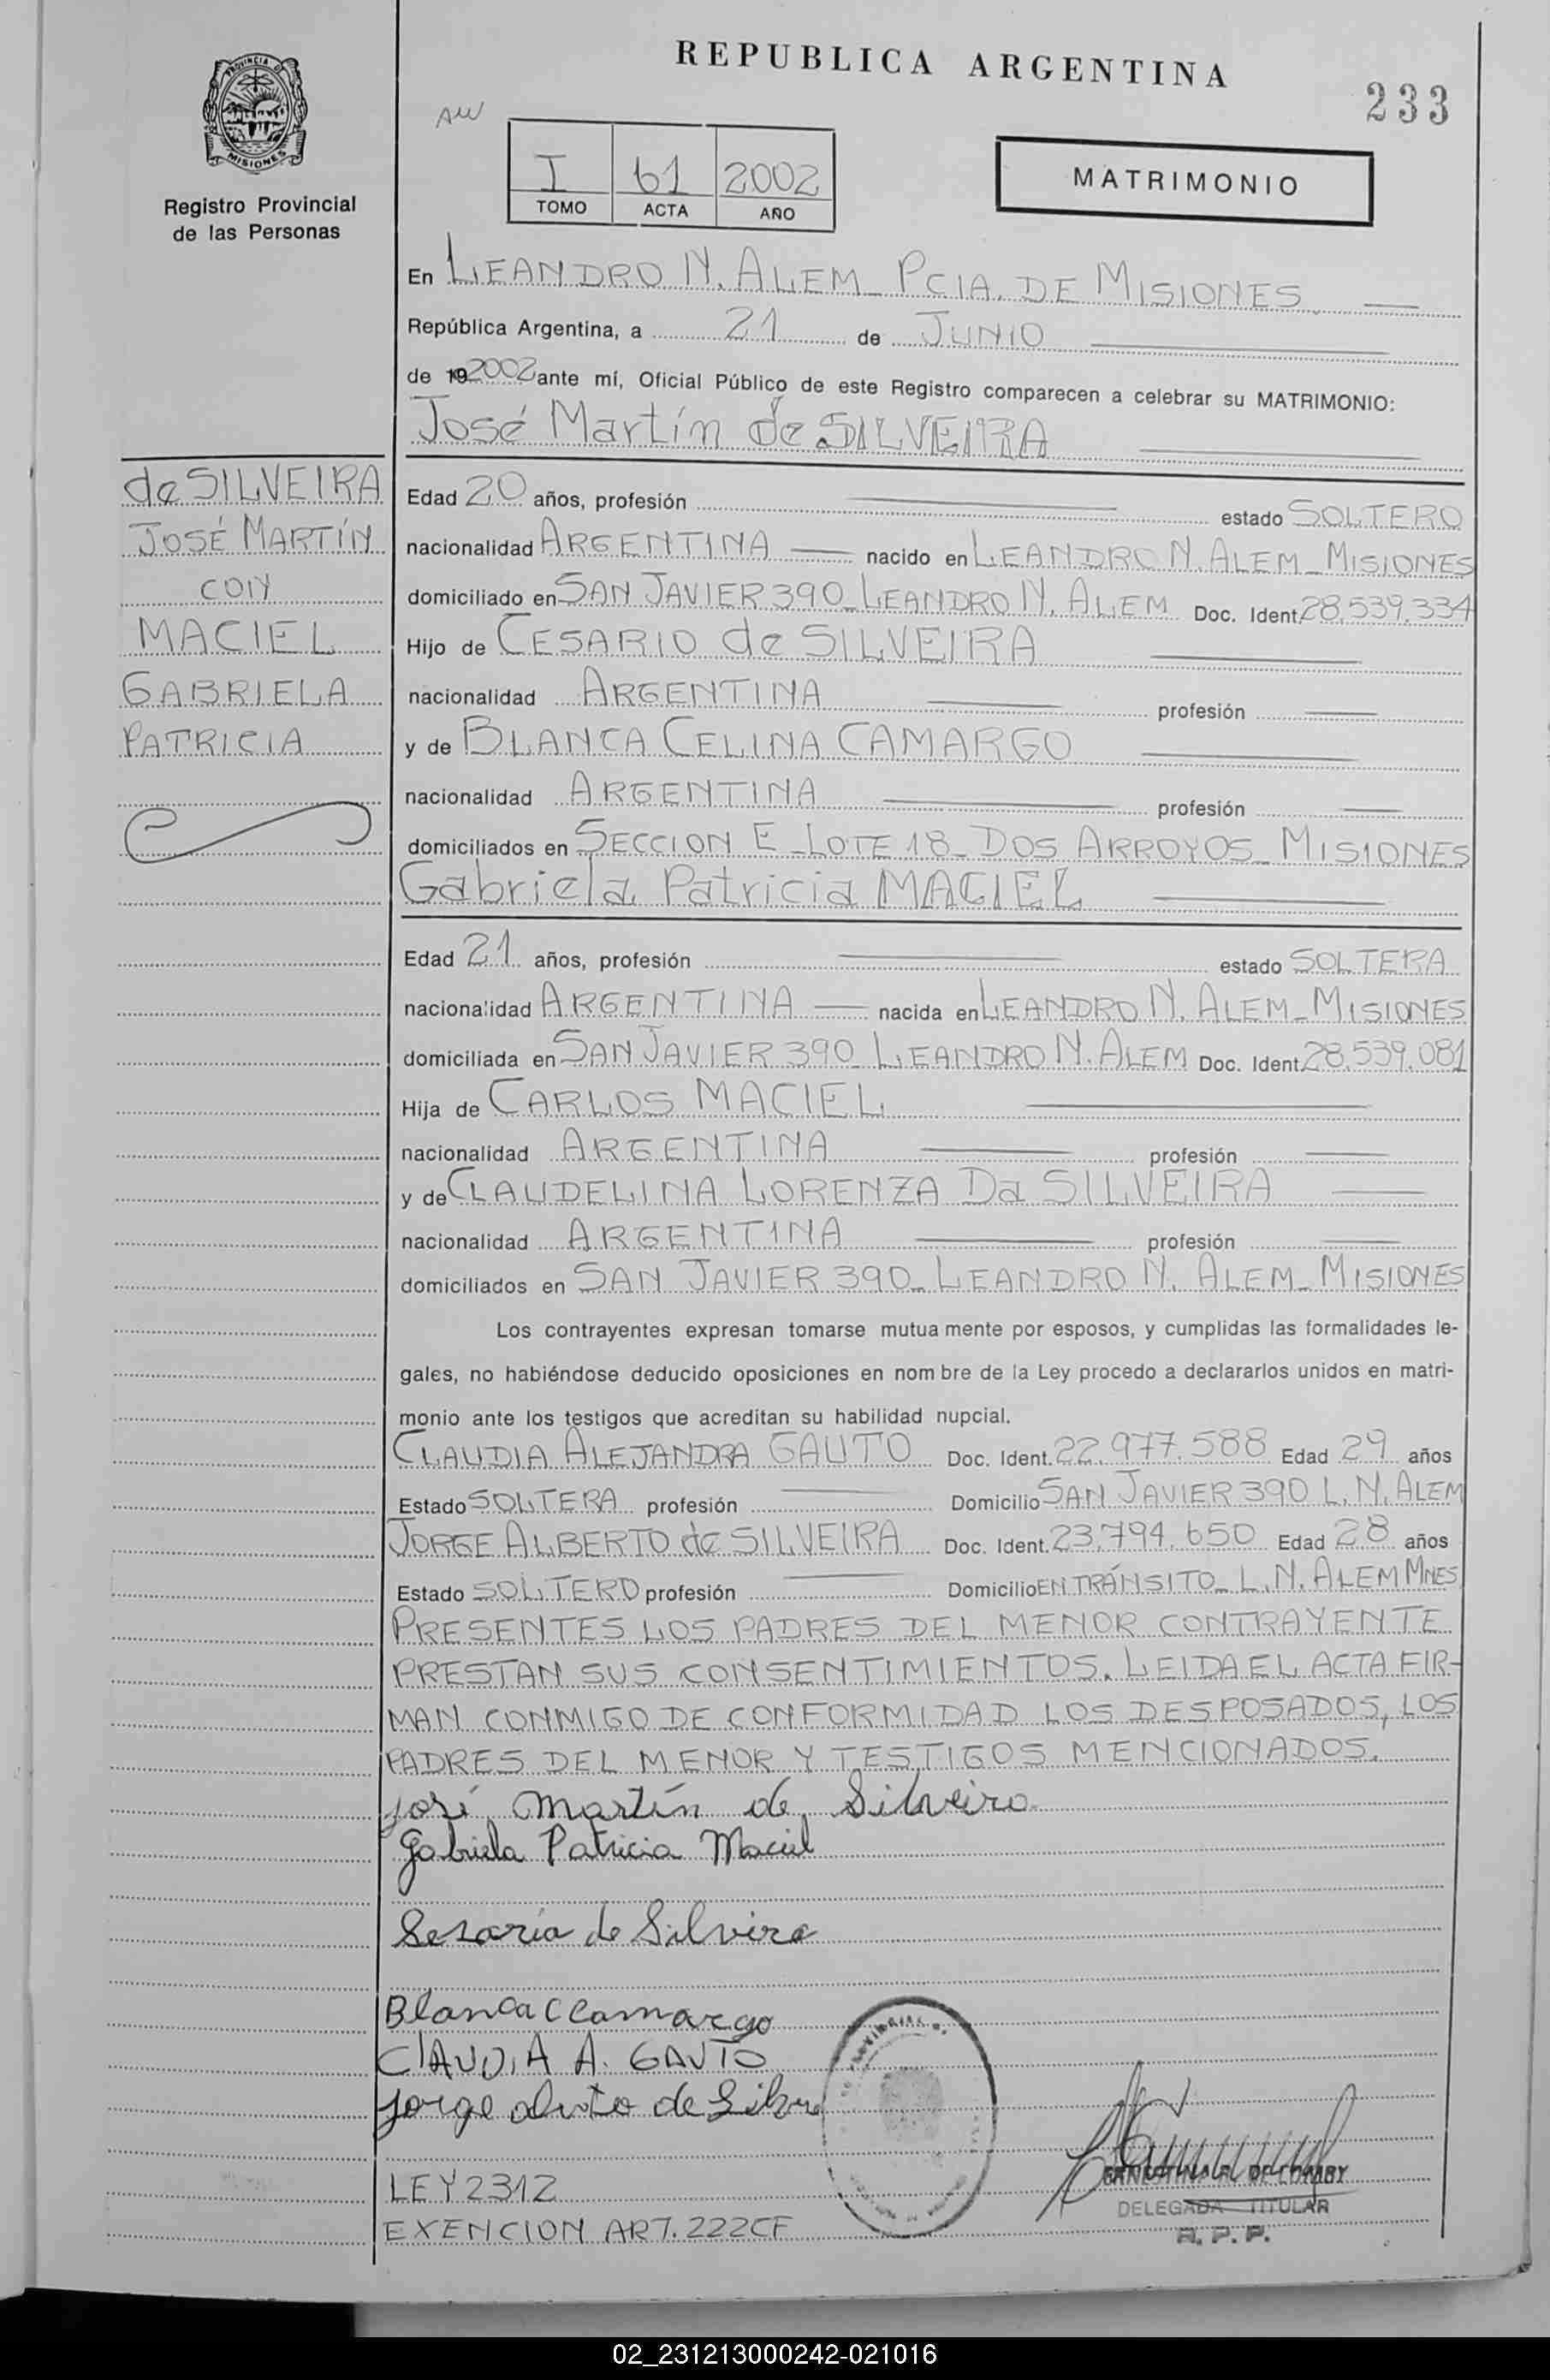 REPUBLICA ARGENTINA
233
PROVINCIA D
MISIONES
Registro Provincial
de las Personas
AW
I 61 2002
TOMO ACTA AÑO
MATRIMONIO
En LEANDRO N. ALEM_ PCIA. DE MISIONES
República Argentina, a 21 de JUNIO
de 192002 ante mí, Oficial Público de este Registro comparecen a celebrar su MATRIMONIO:
José Martín de SILVEIRA
de SILVEIRA
JOSÉ MARTÍN
CON
MACIEL
GABRIELA
PATRICIA
Edad 20 años, profesión estado SOLTERO
nacionalidad ARGENTINA nacido en LEANDRO N. ALEM_MISIONES
domiciliado en SAN JAVIER 390_LEANDRO N. ALEM Doc. Ident. 28.539.334
Hijo de CESARIO de SILVEIRA
nacionalidad ARGENTINA profesión
y de BLANCA CELINA CAMARGO
nacionalidad ARGENTINA profesión
domiciliados en SECCION E_LOTE 18_DOS ARROYOS_MISIONES
Gabriela Patricia MACIEL
Edad 21 años, profesión estado SOLTERA
nacionalidad ARGENTINA nacida en LEANDRO N. ALEM_MISIONES
domiciliada en SAN JAVIER 390_LEANDRO N. ALEM Doc. Ident. 28.539.081
Hija de CARLOS MACIEL
nacionalidad ARGENTINA profesión
y de CLAUDELINA LORENZA Da SILVEIRA
nacionalidad ARGENTINA profesión
domiciliados en SAN JAVIER 390_LEANDRO N. ALEM_MISIONES
Los contrayentes expresan tomarse mutua mente por esposos, y cumplidas las formalidades le-
gales, no habiéndose deducido oposiciones en nom bre de la Ley procedo a declararlos unidos en matri-
monio ante los testigos que acreditan su habilidad nupcial.
CLAUDIA ALEJANDRA GAUTO Doc. Ident. 22.977.588 Edad 29 años
Estado SOLTERA profesión Domicilio SAN JAVIER 390 L.N. ALEM
JORGE ALBERTO de SILVEIRA Doc. Ident. 23.794.650 Edad 28 años
Estado SOLTERO profesión Domicilio EN TRÁNSITO_L.N. ALEM MNES
PRESENTES LOS PADRES DEL MENOR CONTRAYENTE
PRESTAN SUS CONSENTIMIENTOS. LEIDA EL ACTA FIR-
MAN CONMIGO DE CONFORMIDAD LOS DESPOSADOS, LOS
PADRES DEL MENOR Y TESTIGOS MENCIONADOS.
José Martín de Silveira
Gabriela Patricia Maciel
Sesario de Silvira
Blanca C Camargo
CLAUDIA A. GAUTO
Jorge de
LEY 2312
EXENCION ART. 222CF
DELEGADA TITULAR
R. P. P.
02_231213000242-021016